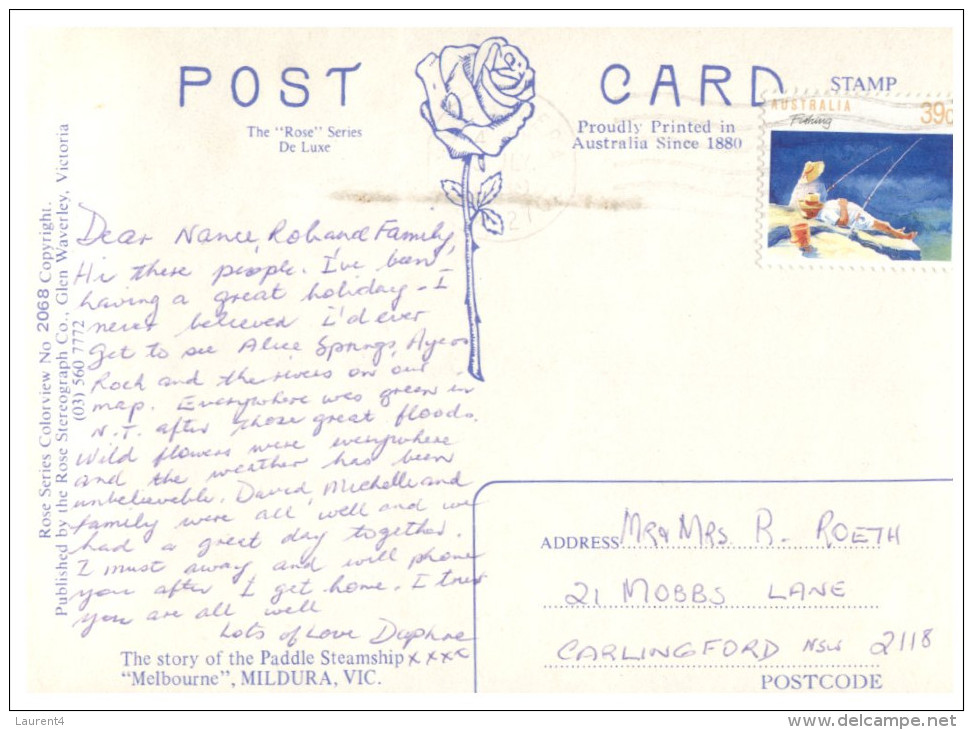 POST CARD
STAMP
The "Rose" Series
De Luxe
Proudly Printed in
Australia Since 1880
AUSTRALIA
39c
Fishing
Rose Series Colorview No 2068 Copyright.
Published by the Rose Stereograph Co., Glen Waverley, Victoria
(03) 560 7772
Dear Nance, Rob and Family,
Hi there people. I've been
having a great holiday - I
never believed I'd ever
get to see Alice Springs, Ayers
Rock and the rivers on our
map. Everywhere was green in
N.T. after those great floods.
Wild flowers were everywhere
and the weather has been
unbelievable. David, Michelle and
family were all well and we
had a great day together.
I must away and will phone
you after I get home. I trust
you are all well
Lots of Love Daphne
xxxx
The story of the Paddle Steamship
"Melbourne", MILDURA, VIC.
ADDRESS Mr & Mrs. R. ROETH
21 MOBBS LANE
CARLINGFORD NSW 2118
POSTCODE
Laurent4
www.delcampe.net